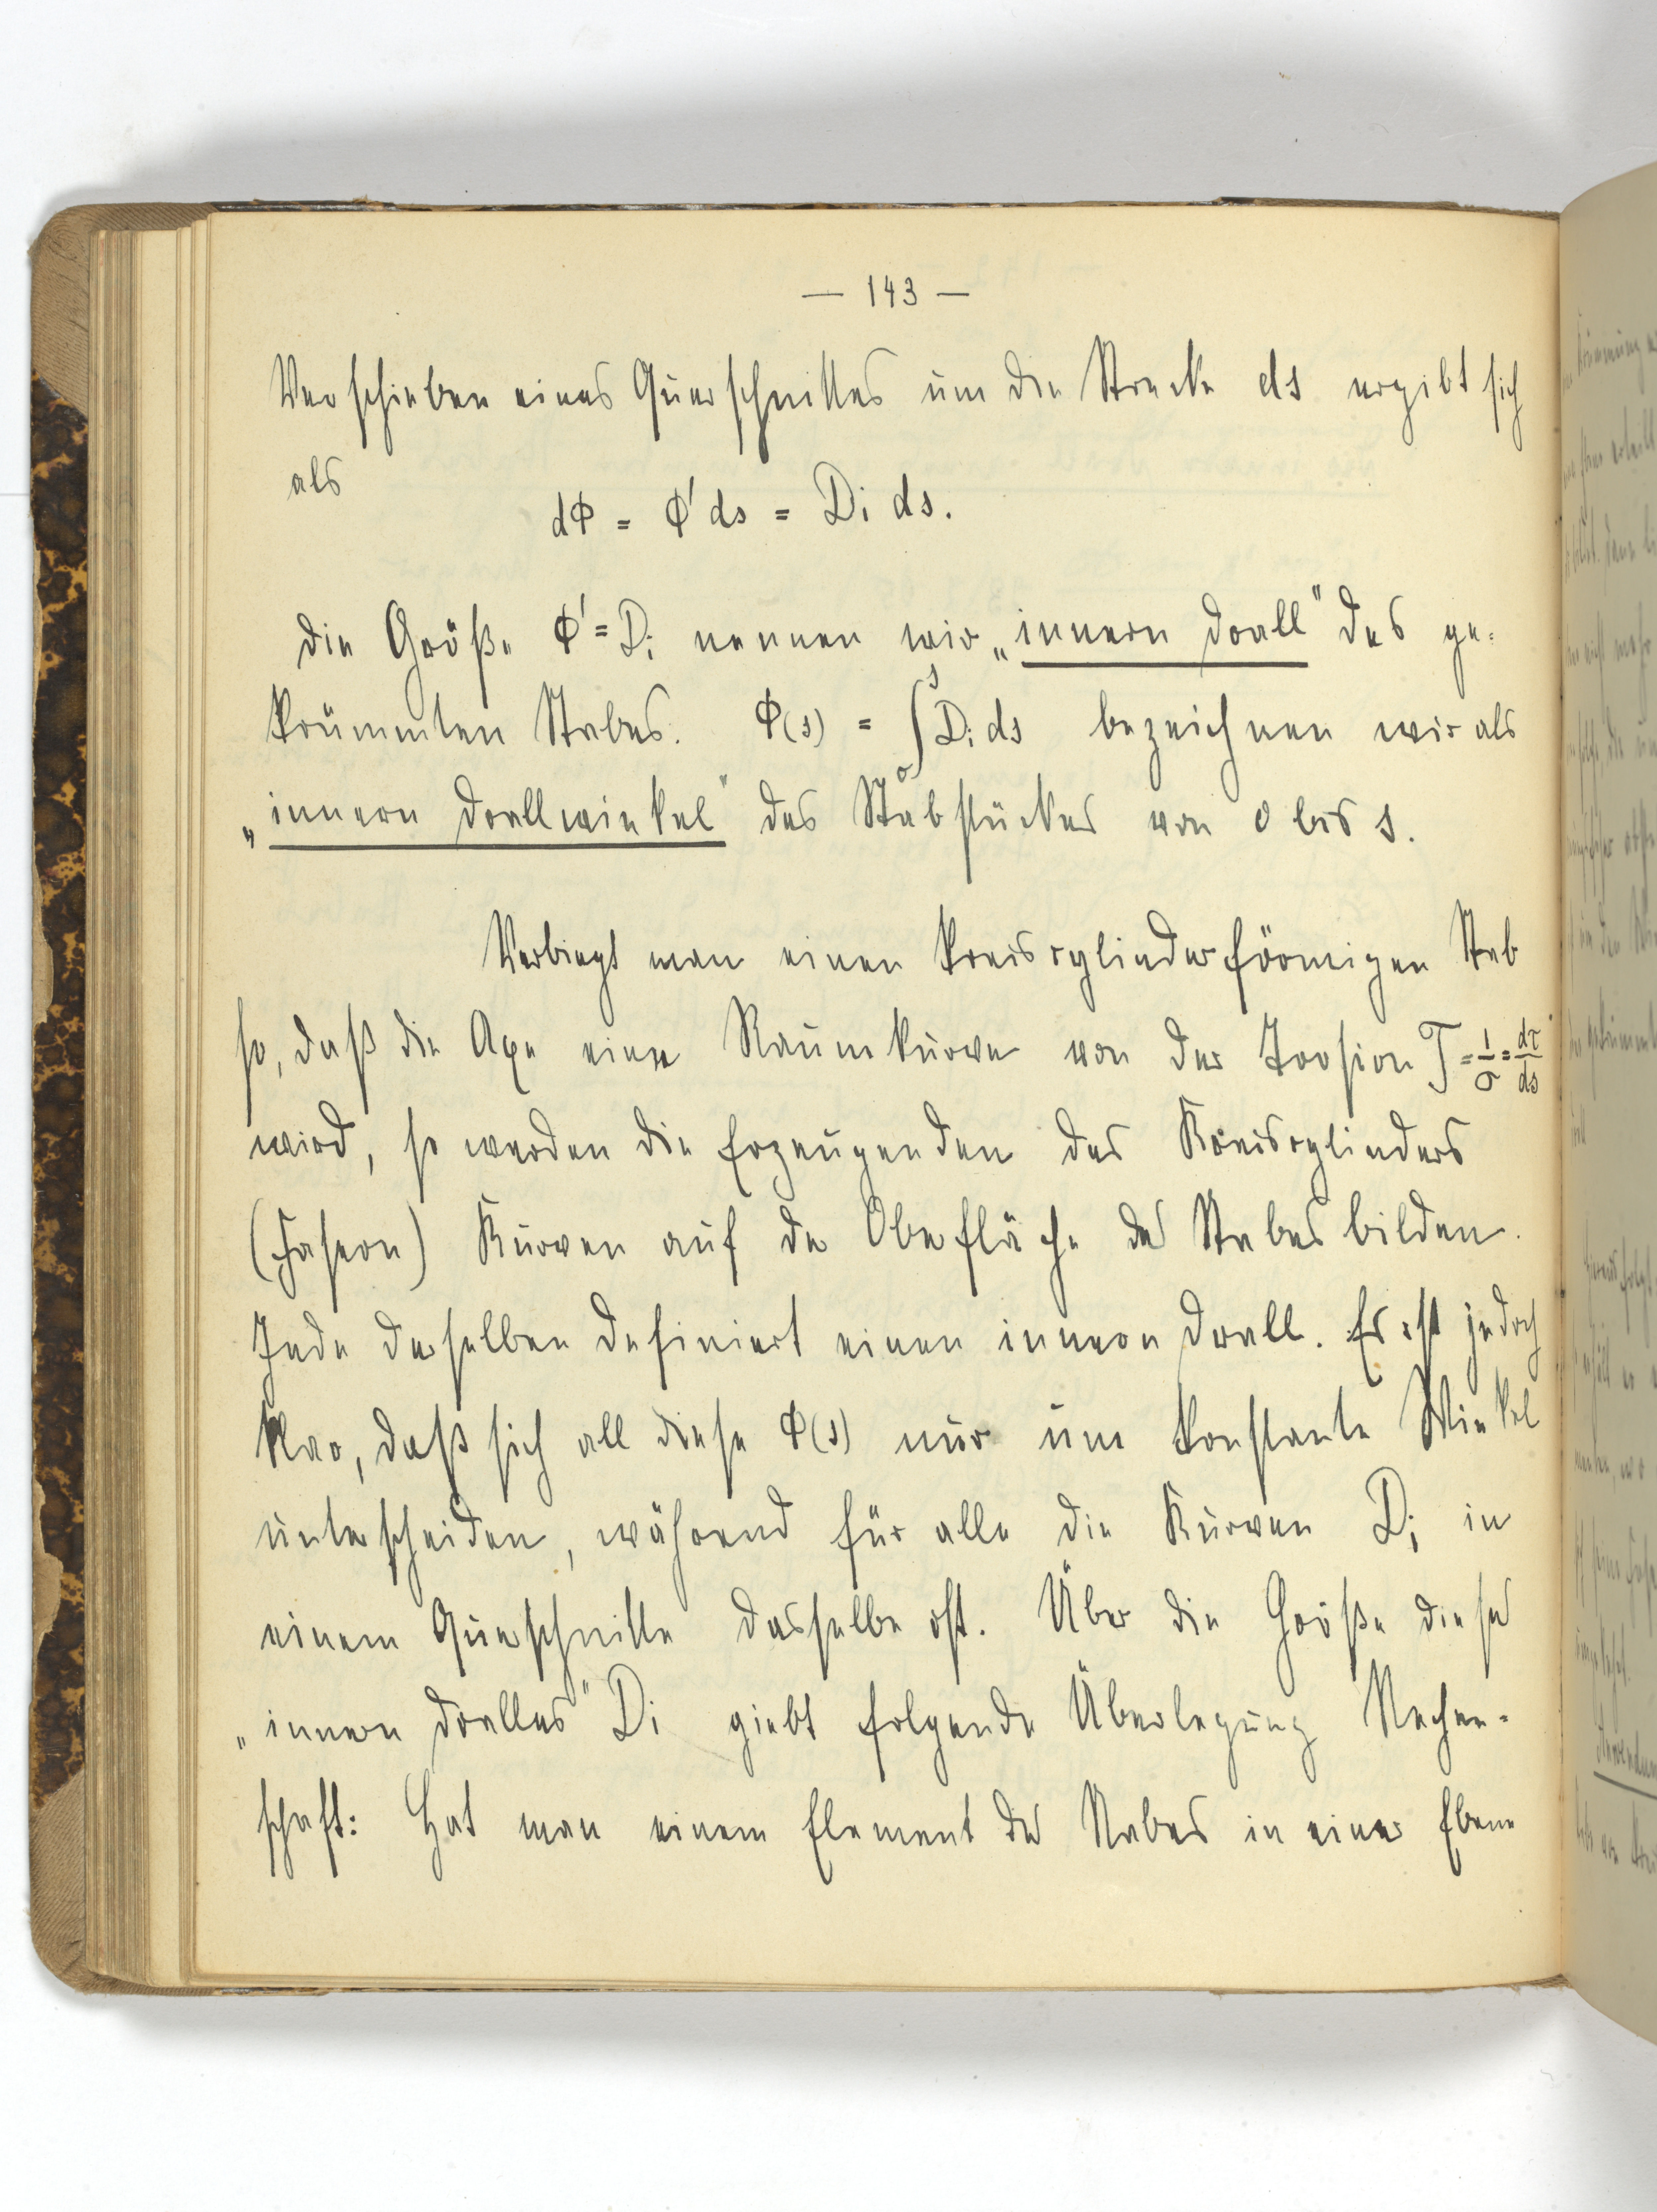 — 143 —
Verschieben eines Querschnittes um die Strecke ds ergibt sich
als
dΦ = Φ' ds = Di ds.
Die Größe Φ' = Di nennen wir „innern Drall" des ge=
krümmten Stabes. Φ(s) = ∫₀ˢ Di ds bezeichnen wir als
„innern Drallwinkel" des Stabstückes von 0 bis s.
Verbiegt man einen kreiscylinderförmigen Stab
so, daß die Axe eine Raumkurve von der Torsion T = 1/σ = dτ/ds
wird, so werden die Erzeugenden des Kreiscylinders
(Fasern) Kurven auf der Oberfläche des Stabes bilden.
Jede derselben definiert einen innern Drall. Es ist jedoch
klar, daß sich all diese Φ(s) nur um konstante Winkel
unterscheiden, während für alle die Kurven Di in
einem Querschnitte dasselbe ist. Über die Größe dieses
„innern Dralles" Di giebt folgende Überlegung Rechen=
schaft: Hat man einem Element des Stabes in einer Ebene